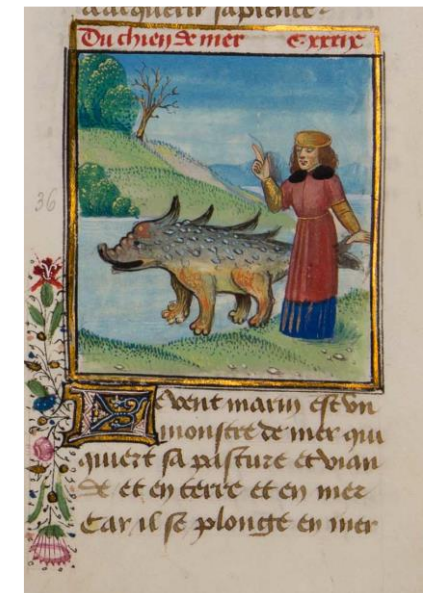 dacquerir sapience
Du chien de mer Cxxxix
36
Le veut marin est vn
monstre de mer qui
quiert sa pasture et vian
de et en terre et en mer
Car il se plonge en mer